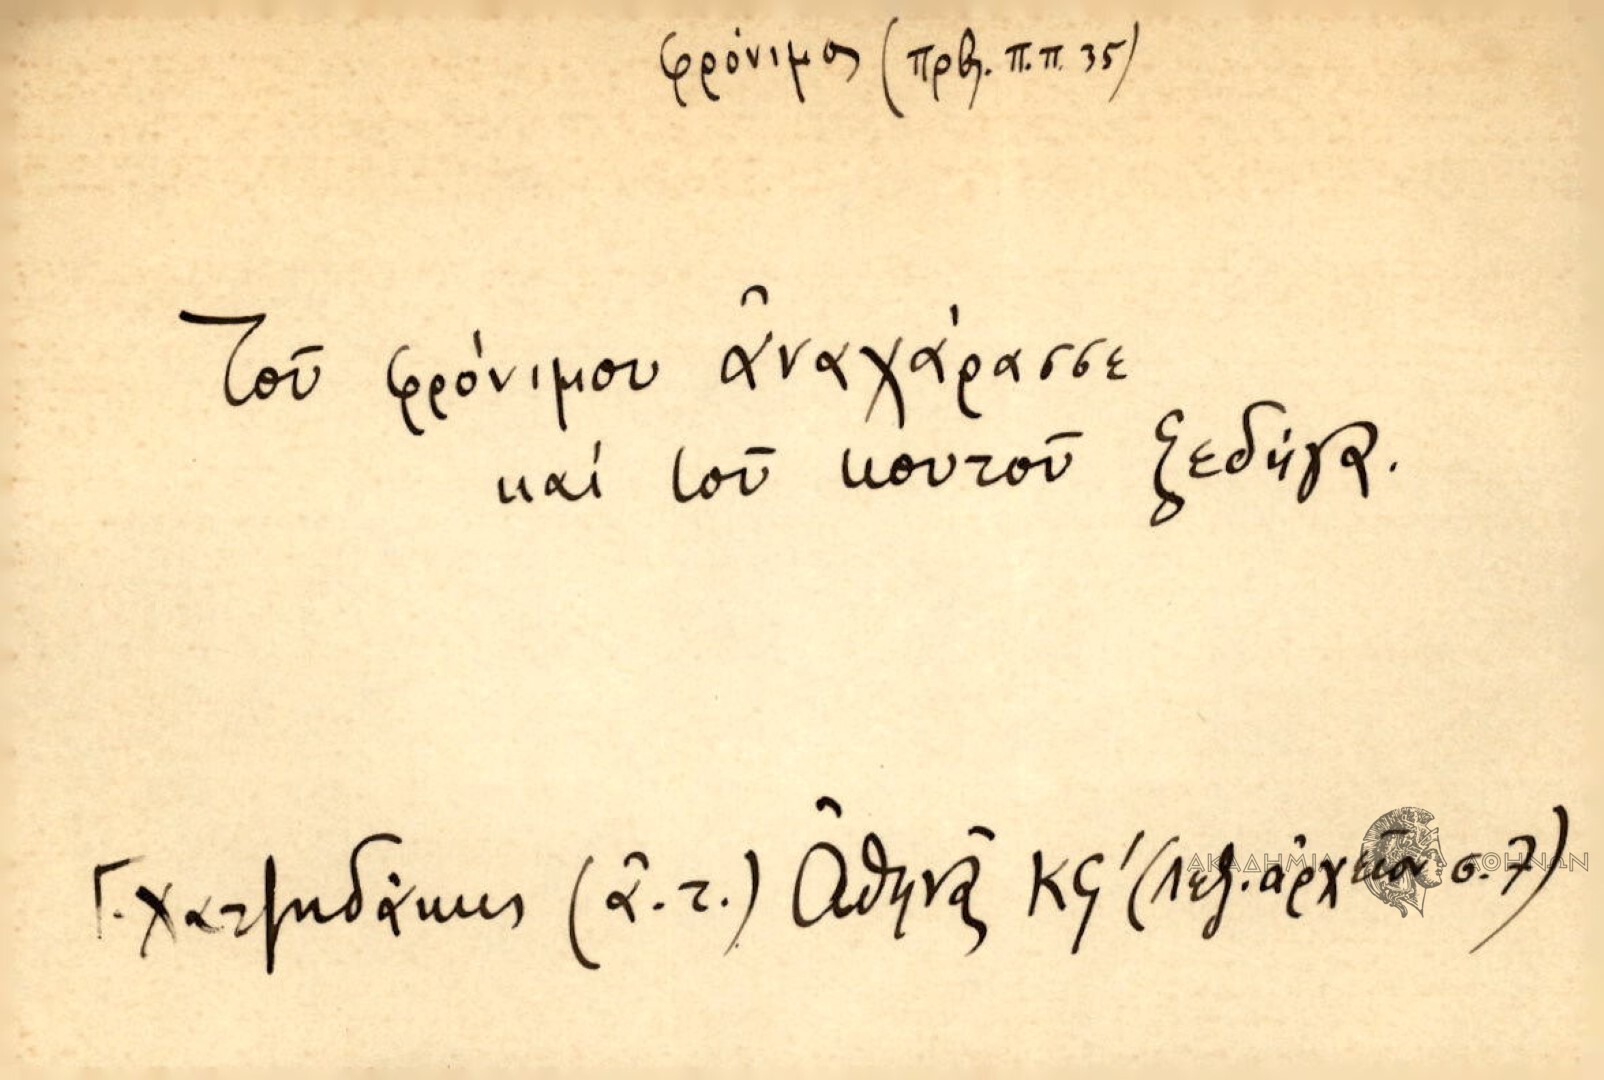 φρόνιμος (πρβ. Π.π. 35)
Τοῦ φρόνιμου ἀναχάρασσε
καί τοῦ κουτοῦ ξεδήγα.
Γ. Χατζηδάκης (ἀ.τ.) Ἀθηνᾶς ΚϚ´ (Λεξ. ἀρχεῖον σ. 7)
ΑΚΑΔΗΜΙΑ ΑΘΗΝΩΝ